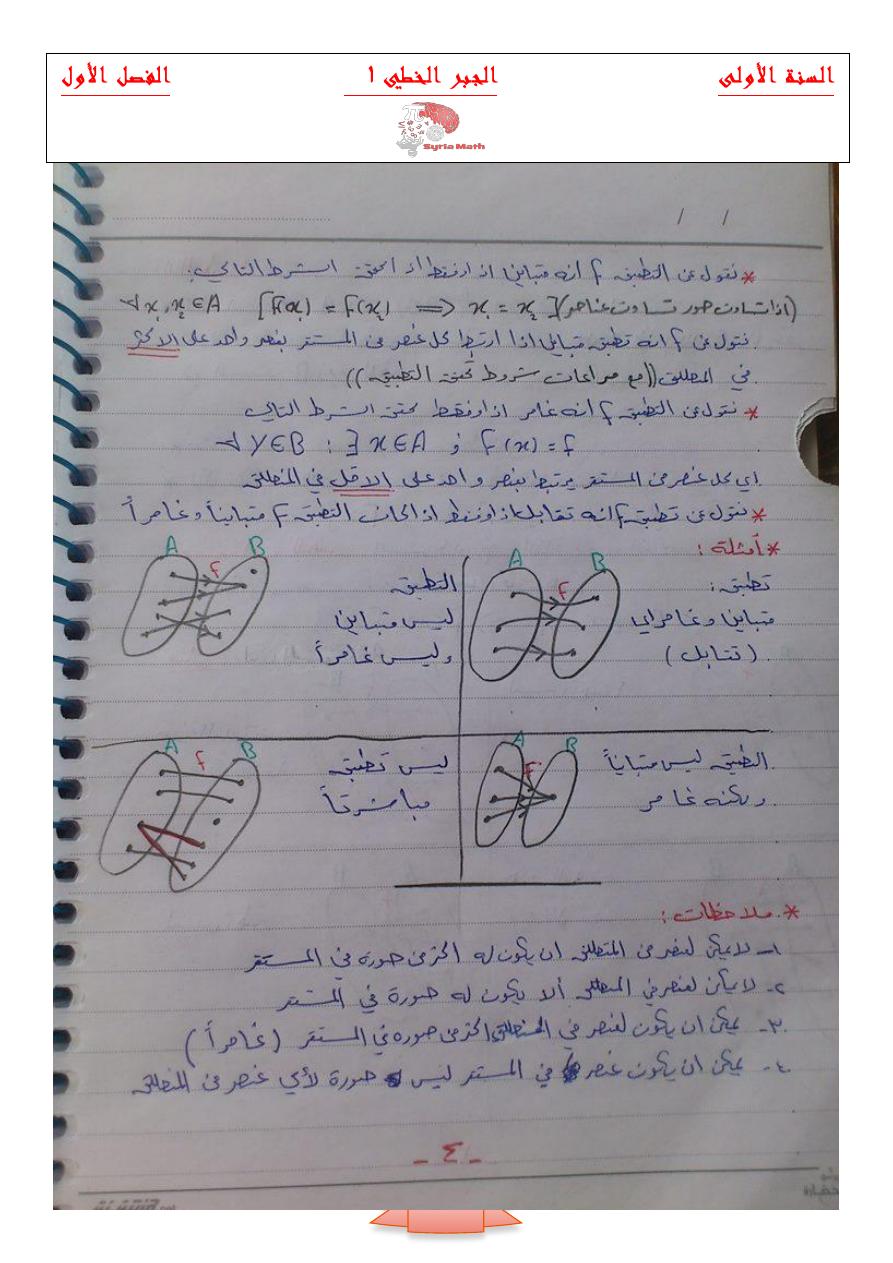 السنة الأولى
الجبر الخطي 1
الفصل الأول
Syria Math
/ /
* نقول عن التطبيق f أنه متباين اذا وفقط اذا تحقق الشرط التالي:
(اذا تساوت صور تساوت عناصر) [f(x₁) = f(x₂) ⟹ x₁ = x₂] ∀ x₁, x₂ ∈ A
نقول عن f انه تطبيق متباين اذا ارتبط كل عنصر من المستقر بعنصر واحد على الاكثر
في المنطلق ((مع مراعات شروط تحقق التطبيق))
* نقول عن التطبيق f أنه غامر اذا وفقط تحقق الشرط التالي
∀ y ∈ B : ∃ x ∈ A و f(x) = f
اي كل عنصر من المستقر يرتبط بعنصر واحد على الاقل في المنطلق
* نقول عن تطبيق f انه تقابل اذا وفقط اذا كان التطبيق f متبايناً وغامراً
* أمثلة:
تطبيق:
متباين وغامر اي
(تقابل)
A
B
f
التطبيق
ليس متباين
وليس غامراً
A
B
f
التطبيق ليس متبايناً
ولكنه غامر
A
B
f
ليس تطبيق
A
B
f
* ملاحظات:
١- لا يمكن لعنصر من المنطلق ان يكون له اكثر من صورة في المستقر
٢- لا يمكن لعنصر في المنطلق ألا يكون له صورة في المستقر
٣- يمكن ان يكون لعنصر في المنطلق اكثر من صورة في المستقر (غامراً)
٤- يمكن ان يكون عنصر في المستقر ليس صورة لأي عنصر من المنطلق
- ٤ -